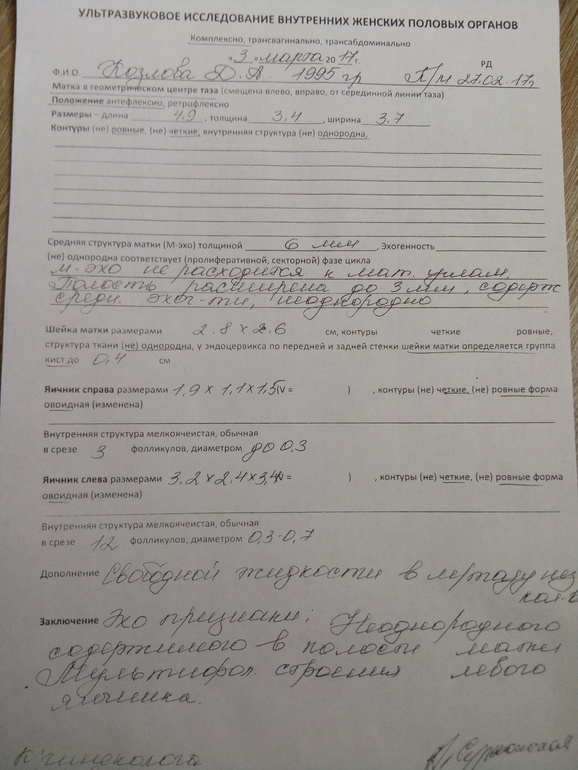 УЛЬТРАЗВУКОВОЕ ИССЛЕДОВАНИЕ ВНУТРЕННИХ ЖЕНСКИХ ПОЛОВЫХ ОРГАНОВ
Комплексно, трансвагинально, трансабдоминально
« 3 » марта 2017г.
РД
Ф.И.О. Козлова Д. А. 1995 гр П/М 27.02.17г
Матка в геометрическом центре таза (смещена влево, вправо, от серединной линии таза)
Положение антефлексио, ретрофлексио
Размеры – длина 4,9 , толщина 3,4 , ширина 3,7
Контуры (не) ровные, (не) четкие, внутренняя структура (не) однородна,
Средняя структура матки (М-эхо) толщиной 6 мм , Эхогенность
(не) однородна соответствует (пролиферативной, секторной) фазе цикла
М-эхо не расходится к мат. углам,
Полость расширена до 3 мм, содерж
средн. эхог-ти, неоднородно
Шейка матки размерами 2.8 х 2.6 см, контуры четкие ровные,
структура ткани (не) однородна, у эндоцервикса по передней и задней стенки шейки матки определяется группа
кист до 0,4 см
Яичник справа размерами 1,9 х 1,1 х 1,5 (V = ) , контуры (не) четкие, (не) ровные форма
овоидная (изменена)
Внутренняя структура мелкоячеистая, обычная
в срезе 3 фолликулов, диаметром до 0,3
Яичник слева размерами 3,2 х 2,4 х 3,4 (V = ) , контуры (не) четкие, (не) ровные форма
овоидная (изменена)
Внутренняя структура мелкоячеистая, обычная
в срезе 12 фолликулов, диаметром 0,3-0,7
Дополнение Свободной жидкости в м/тазу нез
кол-в
Заключение Эхо признаки: Неоднородного
содержимого в полости матки
Мультифол. строения левого
яичника.
К гинеколога